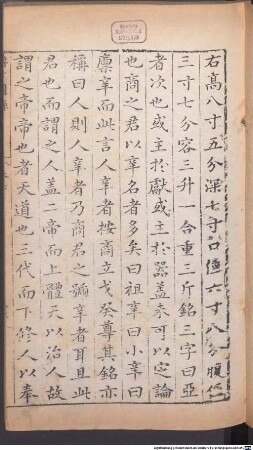 右高八寸五分深七寸口徑六寸八分腹徑
三寸七分容三升一合重三斤銘三字曰亞
者次也或主於獻或主於器蓋未可以定論
也商之君以辛名者多矣曰祖辛曰小辛曰
廪辛而此言人辛者按商立戈癸尊其銘亦
稱曰人則人辛者乃商君之號辛者耳且此
君也而謂之人蓋二帝而上體天以治人故
謂之帝帝也者天道也三代而下修人以奉